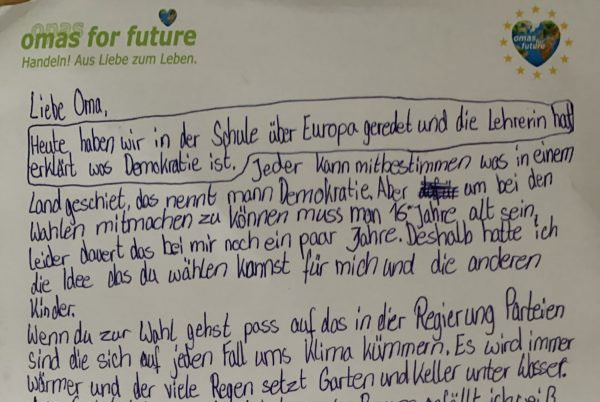 omas for future
Handeln! Aus Liebe zum Leben.
omas for future
Liebe Oma,
Heute haben wir in der Schule über Europa geredet und die Lehrerin hat
erklärt was Demokratie ist. Jeder kann mitbestimmen was in einem
Land geschiet, das nennt mann Demokratie. Aber um bei den
Wahlen mitmachen zu können muss man 16 Jahre alt sein,
leider dauert das bei mir noch ein paar Jahre. Deshalb hatte ich
die Idee das du wählen kannst für mich und die anderen
Kinder.
Wenn du zur Wahl gehst pass auf das in der Regierung Parteien
sind die sich auf jeden Fall ums Klima kümmern. Es wird immer
wärmer und der viele Regen setzt Garten und Keller unter Wasser.